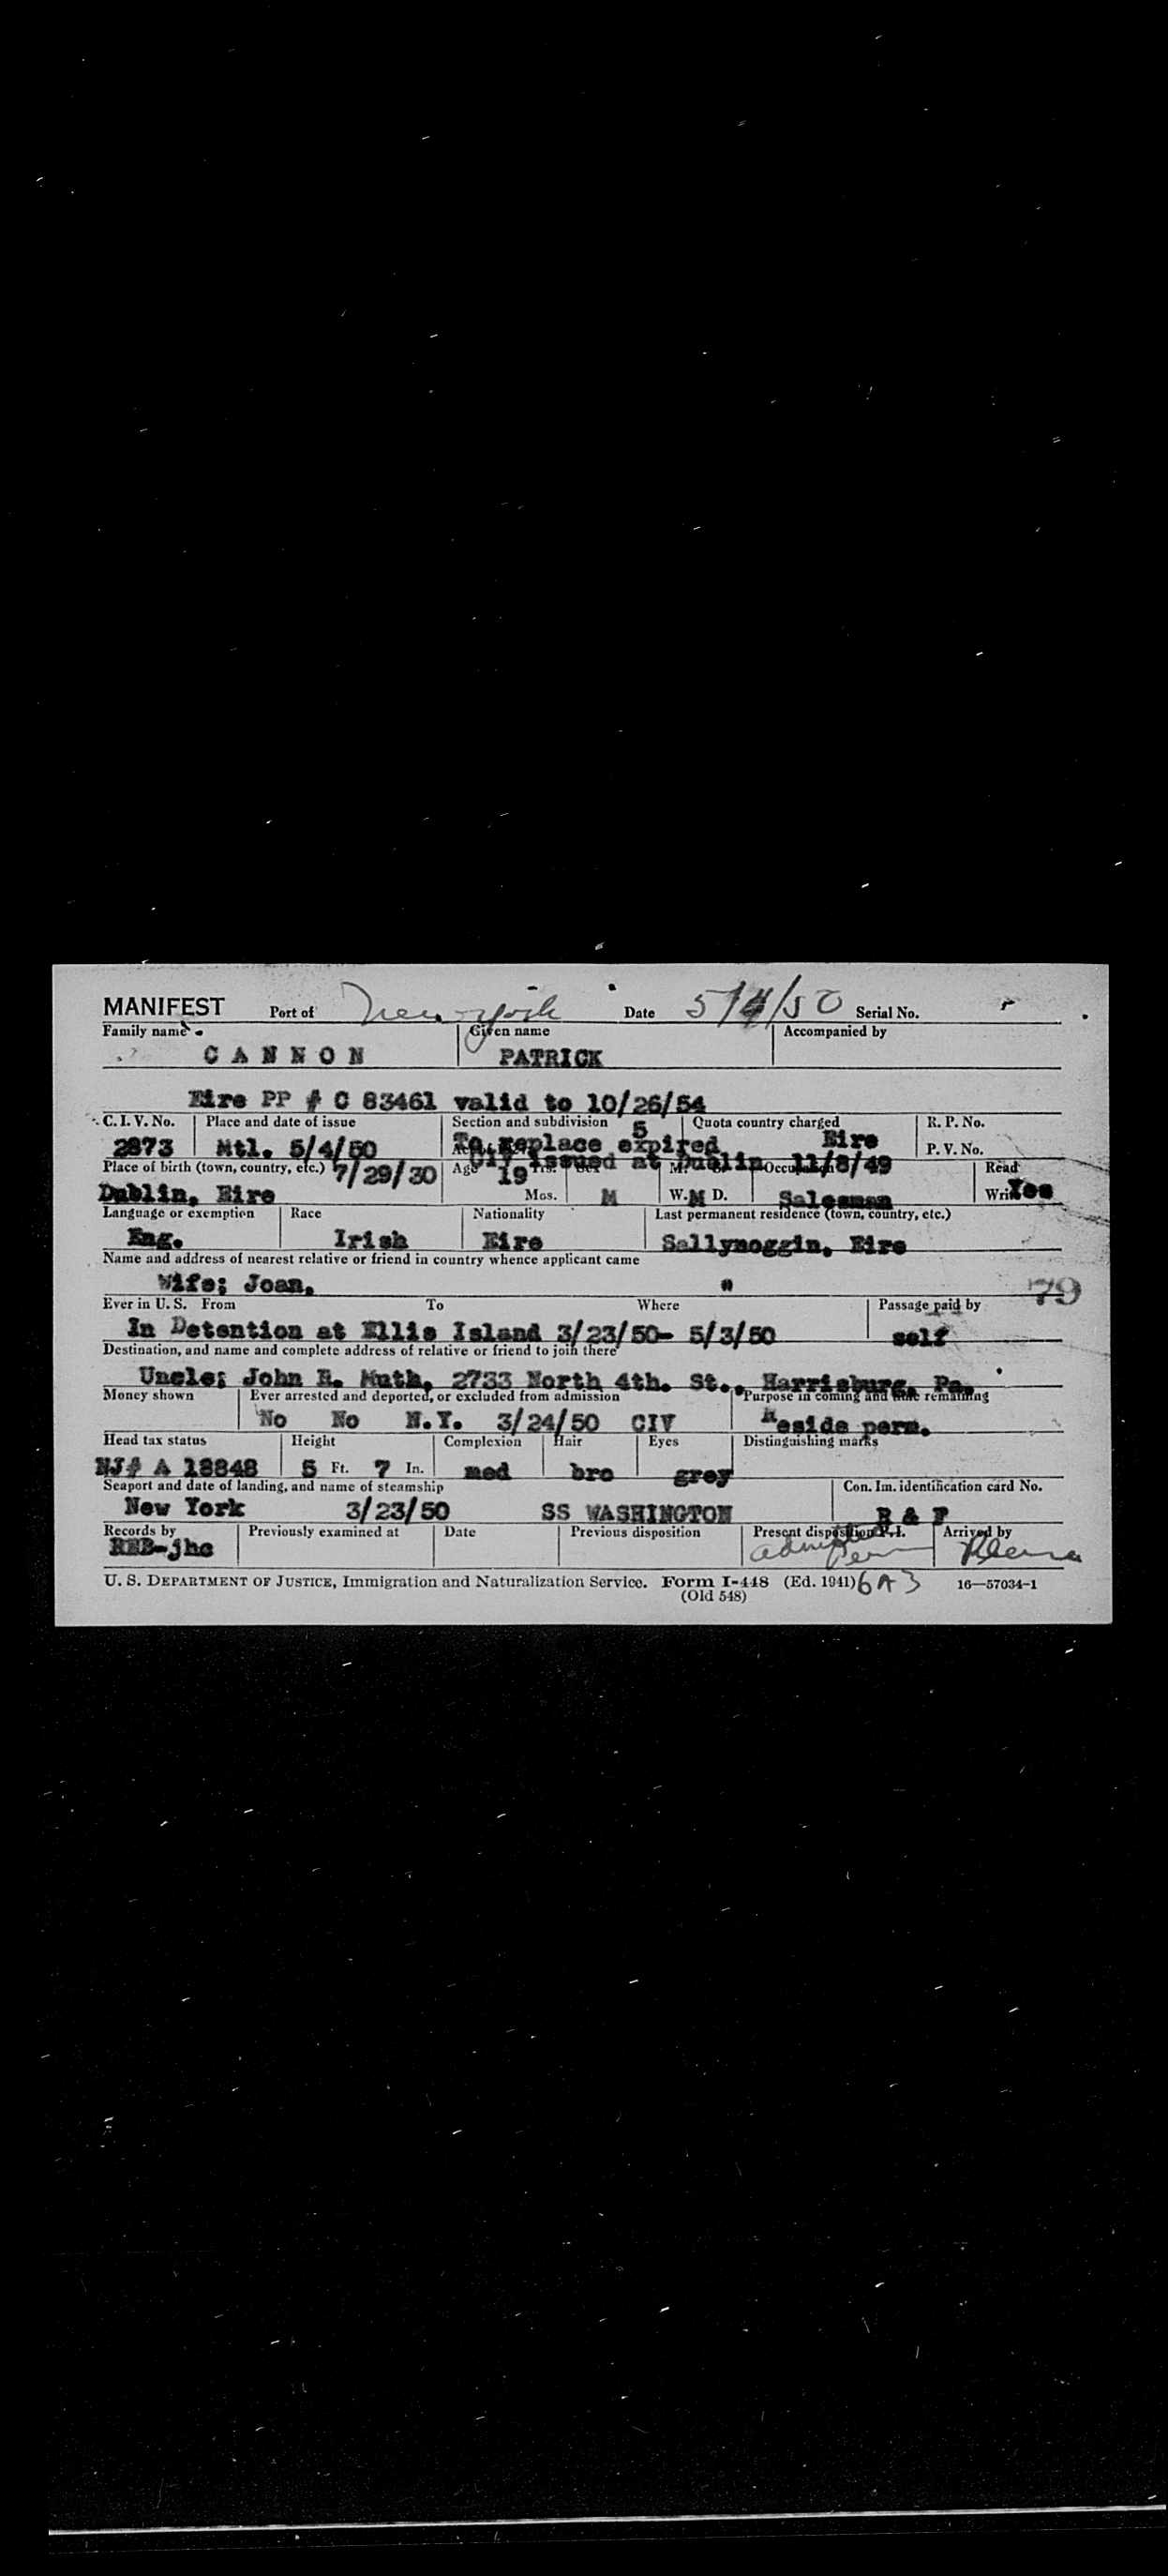 MANIFEST Port of New York Date 5/4/50 Serial No.
Family name Given name Accompanied by
CANNON PATRICK
Eire PP # C 83461 valid to 10/26/54
C. I. V. No. Place and date of issue Section and subdivision 5 Quota country charged R. P. No.
2873 Mtl. 5/4/50 To replace expired Eire P. V. No.
CIV issued at Dublin 11/8/49
Place of birth (town, country, etc.) 7/29/30 Age 19 Yrs. Sex M. S. Occupation Read
Dublin, Eire Mos. M W. M D. Salesman Write Yes
Language or exemption Race Nationality Last permanent residence (town, country, etc.)
Eng. Irish Eire Sallynoggin, Eire
Name and address of nearest relative or friend in country whence applicant came
Wife; Joan, "
79
Ever in U. S. From To Where Passage paid by
In Detention at Ellis Island 3/23/50- 5/3/50 self
Destination, and name and complete address of relative or friend to join there
Uncle; John R. Muth, 2733 North 4th. St., Harrisburg, Pa.
Money shown Ever arrested and deported, or excluded from admission Purpose in coming and time remaining
No No N.Y. 3/24/50 CIV Reside perm.
Head tax status Height Complexion Hair Eyes Distinguishing marks
NJ# A 18848 5 Ft. 7 In. med bro grey
Seaport and date of landing, and name of steamship Con. Im. identification card No.
New York 3/23/50 SS WASHINGTON R & F
Records by Previously examined at Date Previous disposition Present disposition P.I. Arrived by
REB-jhc admitted Perm
U. S. DEPARTMENT OF JUSTICE, Immigration and Naturalization Service. Form I-448 (Ed. 1941) 6A3 16—57034-1
(Old 548)